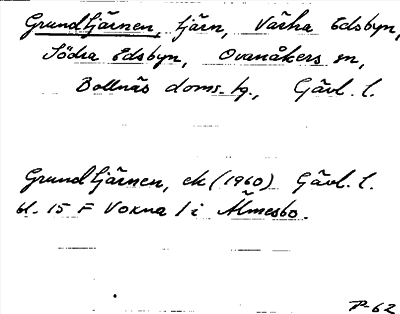 Grundtjärnen, tjärn, Västra Edsbyn,
Södra Edsbyn, Ovanåkers sn,
Bollnäs doms.-tg., Gävl. l.
Grundtjärnen, ek (1960) Gävl. l.
bl. 15 F Voxna / i Älmesbo.
P-62